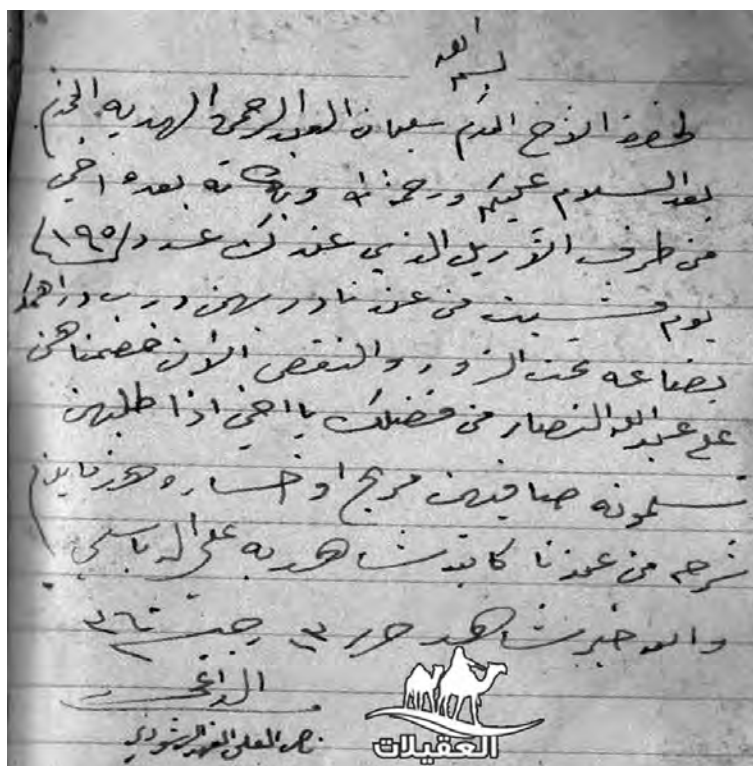 بسم الله
لحضرة الأخ المكرم سليمان العبد الرحمن المهديه المحترم
بعد السلام عليكم ورحمة الله وبركاته بعده اخي
من طرف الريل الذي عندك عدد (١٩٥)
يوم مشيت من عندنا درب دراهم
بضاعه تحت الزود والنقص الآن خصمناهن
على عبدالله النصار من فضلك يا اخي اذا طلبهن
تسلمونه صافيهن مربح او خساره وهن
من عندنا كاتبه شاهد به علي
والله خير شاهد حرر ١٣ رجب
الداعي
ناصر العلي الفهد الرشودي
العقيلات